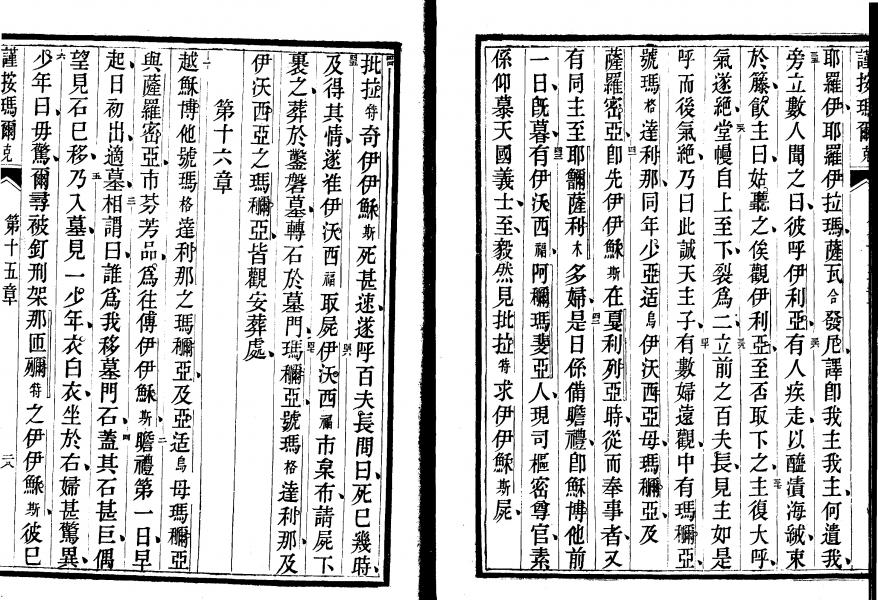 謹按瑪爾克
耶羅伊耶羅伊拉瑪薩瓦合發尼譯卽我主我主何遺我
旁立數人聞之曰彼呼伊利亞有人疾走以醯漬海絨束
於籐飮主曰姑聽之俟觀伊利亞至否取下之主復大呼
氣遂絶堂幔自上至下裂爲二立前之百夫長見主如是
呼而後氣絶乃曰此誠天主子有數婦遠觀中有瑪穪亞
號瑪格達利那同年少亞适烏伊沃西亞母瑪穪亞及
薩羅密亞卽先伊伊穌斯在戛利列亞時從而奉事者又
有同主至耶䤄薩利木多婦是日係備瞻禮卽穌博他前
一日旣暮有伊沃西福阿穪瑪斐亞人現司樞密尊官素
係仰慕天國義士至毅然見批拉特求伊伊穌斯屍
批拉特奇伊伊穌斯死甚速遂呼百夫長問曰死已幾時
及得其情遂准伊沃西福取屍伊沃西福市枲布請屍下
裹之葬於鑿磐墓轉石於墓門瑪穪亞號瑪格達利那及
伊沃西亞之瑪穪亞皆觀安葬處
第十六章
越穌博他號瑪格達利那之瑪穪亞及亞适烏母瑪穪亞
與薩羅密亞市芬芳品爲往傅伊伊穌斯瞻禮第一日早
起日初出適墓相謂曰誰爲我移墓門石蓋其石甚巨偶
望見石已移乃入墓見一少年衣白衣坐於右婦甚驚異
少年曰毋驚爾尋被釘刑架那匝穪特之伊伊穌斯彼已
謹按瑪爾克
第十五章
二八